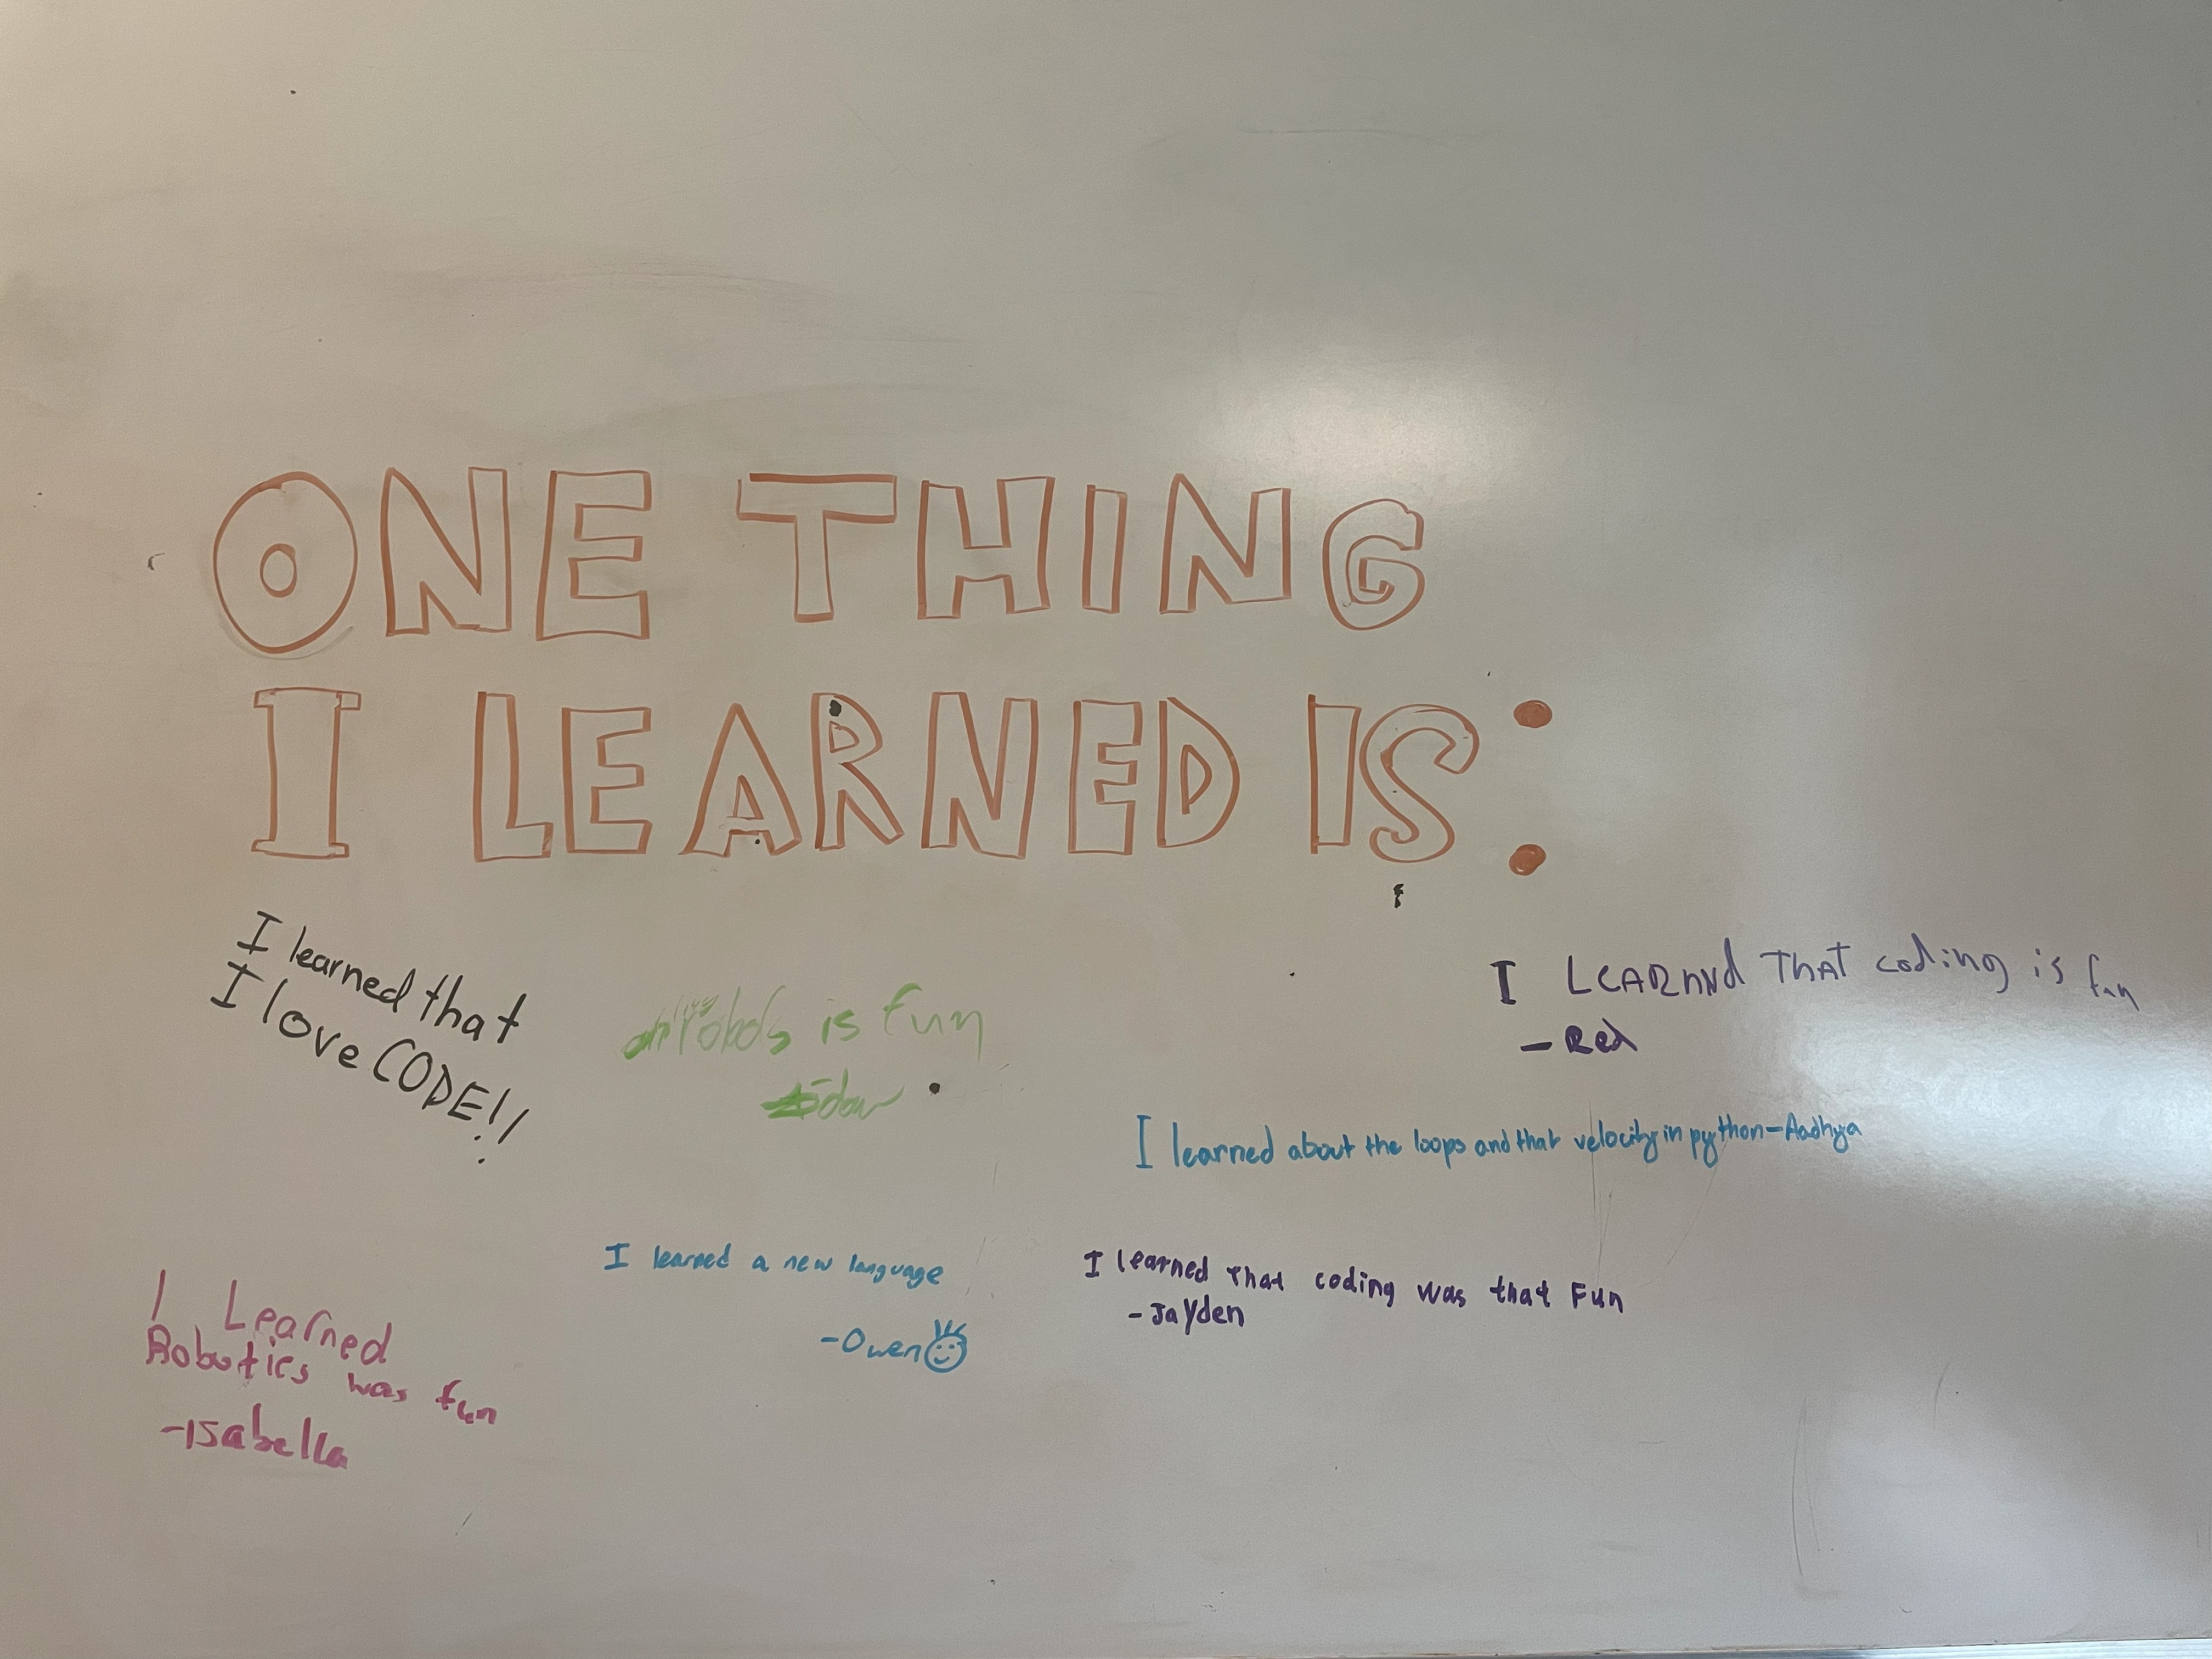 ONE THING
I LEARNED IS:
I learned that
I love CODE!!
robots is fun
I LEARNND THAT coding is fun
- Red
I learned about the loops and that velocity in python - Aadhya
I learned a new language
- Owen
I learned that coding was that Fun
- Jayden
I Learned
Robotics was fun
- Isabella